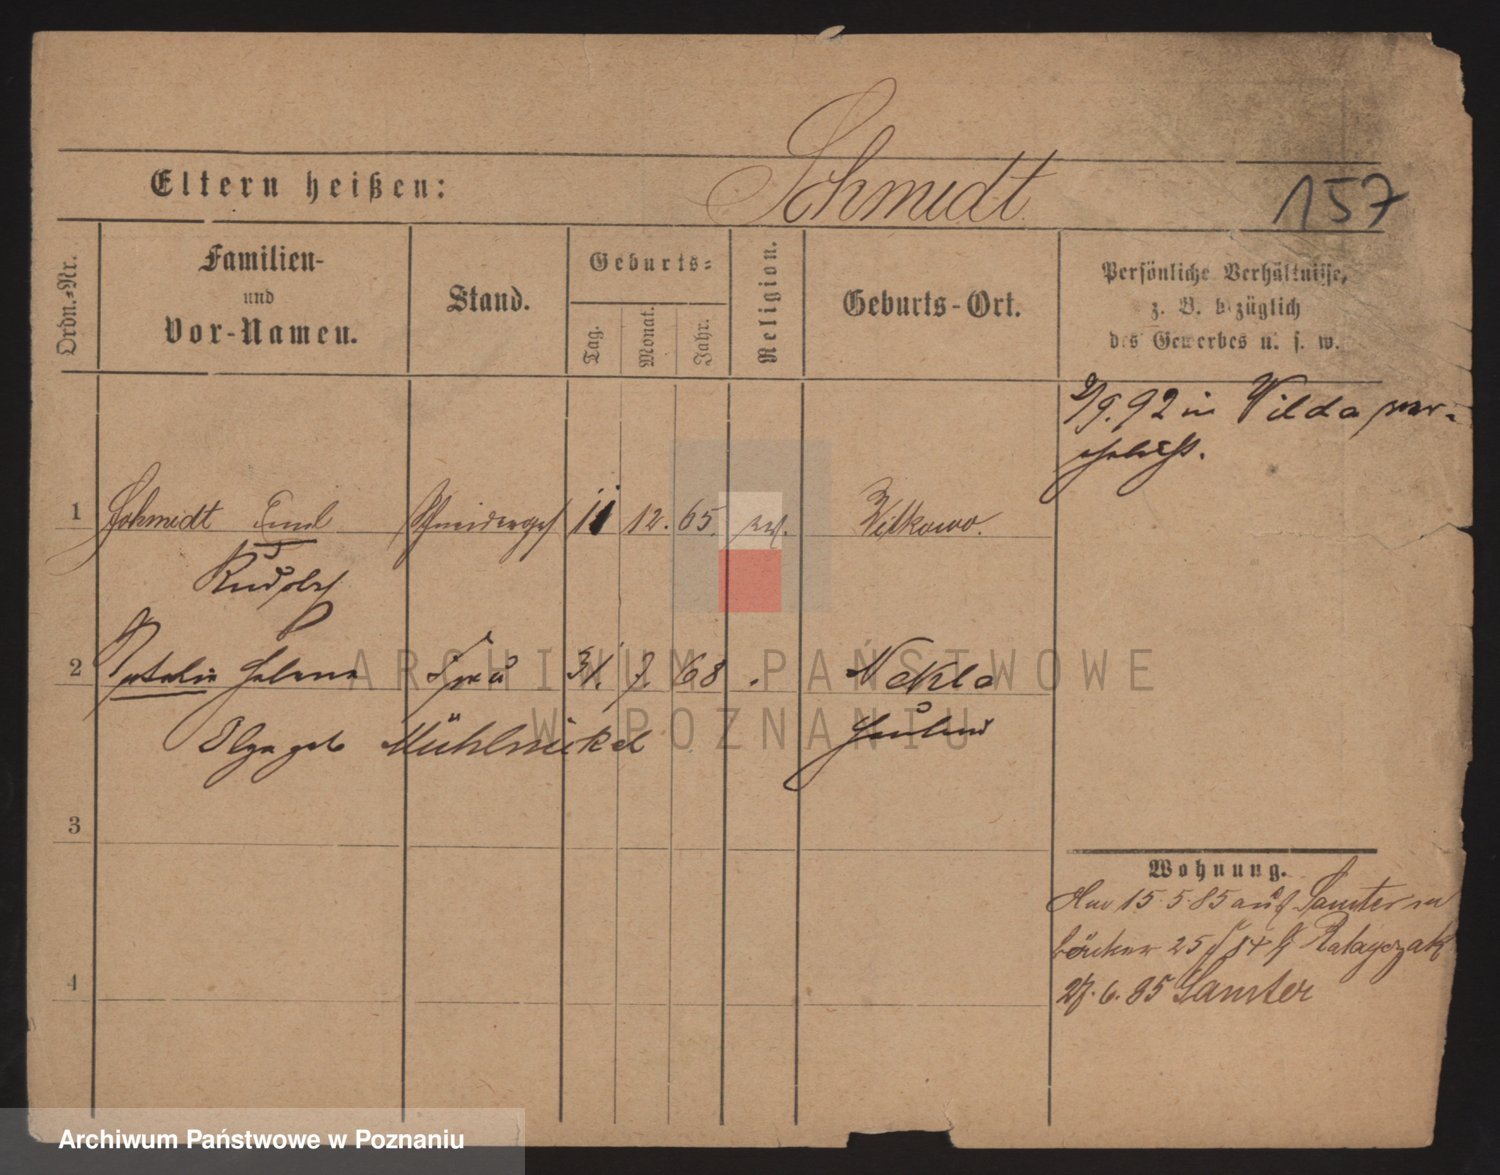 Eltern heißen: Schmidt 157
Ordn.-Nr.
Familien-
und
Vor-Namen.
Stand.
Geburts-
Tag.
Monat.
Jahr.
Religion.
Geburts-Ort.
Persönliche Verhältnisse,
z. B. bezüglich
des Gewerbes u. s. w.
2/9. 92 in Wilda ver-
ehelicht.
1 Schmidt Emil Schneiderges 11 12. 65. ev. Witkowo.
Rudolf
2 Natalie Helene Frau 31. 7. 68 Nekla
Olga geb Mühlnickel Hauland
3
Wohnung.
15 5 85 aus Samter
25 84 Ratajczak
4
27. 6. 85 Samter
ARCHIWUM PAŃSTWOWE
W POZNANIU
Archiwum Państwowe w Poznaniu